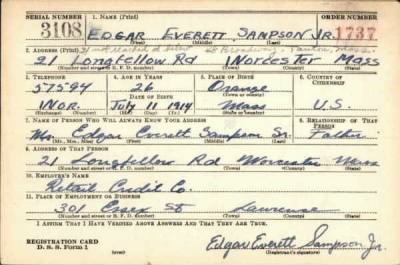 SERIAL NUMBER 1. NAME (Print) ORDER NUMBER
3108 EDGAR EVERETT SAMPSON JR. 1737
(First) (Middle) (Last)
2. ADDRESS (Print)
21 Longfellow Rd Worcester Mass
(Number and street or R. F. D. number) (Town) (County) (State)
3. TELEPHONE 4. AGE IN YEARS 5. PLACE OF BIRTH 6. COUNTRY OF CITIZENSHIP
57594 26 Orange
DATE OF BIRTH (Town or county)
Wor. July 11 1914 Mass U.S.
(Exchange) (Mo.) (Day) (Yr.) (State or country)
7. NAME OF PERSON WHO WILL ALWAYS KNOW YOUR ADDRESS 8. RELATIONSHIP OF THAT PERSON
Mr. Edgar Everett Sampson Sr. Father
(Mr., Mrs., Miss) (First) (Middle) (Last)
9. ADDRESS OF THAT PERSON
21 Longfellow Rd Worcester Mass
(Number and street or R. F. D. number) (Town) (County) (State)
10. EMPLOYER'S NAME
Retail Credit Co.
11. PLACE OF EMPLOYMENT OR BUSINESS
301 Essex St Lawrence
(Number and street or R. F. D. number) (Town) (County) (State)
I AFFIRM THAT I HAVE VERIFIED ABOVE ANSWERS AND THAT THEY ARE TRUE.
REGISTRATION CARD
D. S. S. Form 1 (over) Edgar Everett Sampson, Jr.
(Registrant's signature)